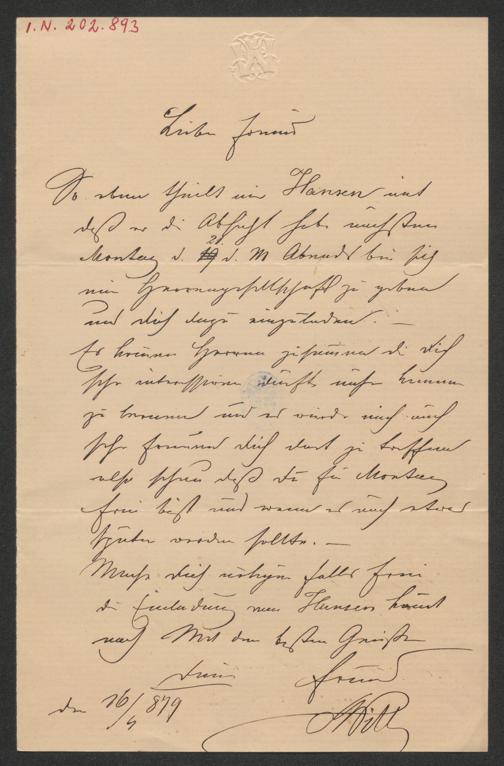 I.N. 202.893
Lieber Freund
So eben theilt mir Hansen mit
daß er die Absicht habe nächsten
Montag d. 21. d. M Abends bei sich
eine Herrengesellschaft zu geben
und dich dazu einzuladen. –
Es kommen Herren zusammen die dich
sehr interessiren dürfte näher kennen
zu lernen und es würde mich auch
sehr freuen dich dort zu treffen
also schau daß du für Montag
frei bist und wenn es auch etwas
später werden sollte. –
Mache dich nötigen falls frei
die Einladung von Hansen kömt
nach Mit den besten Grüßen
dein Freund
den 16/4 879